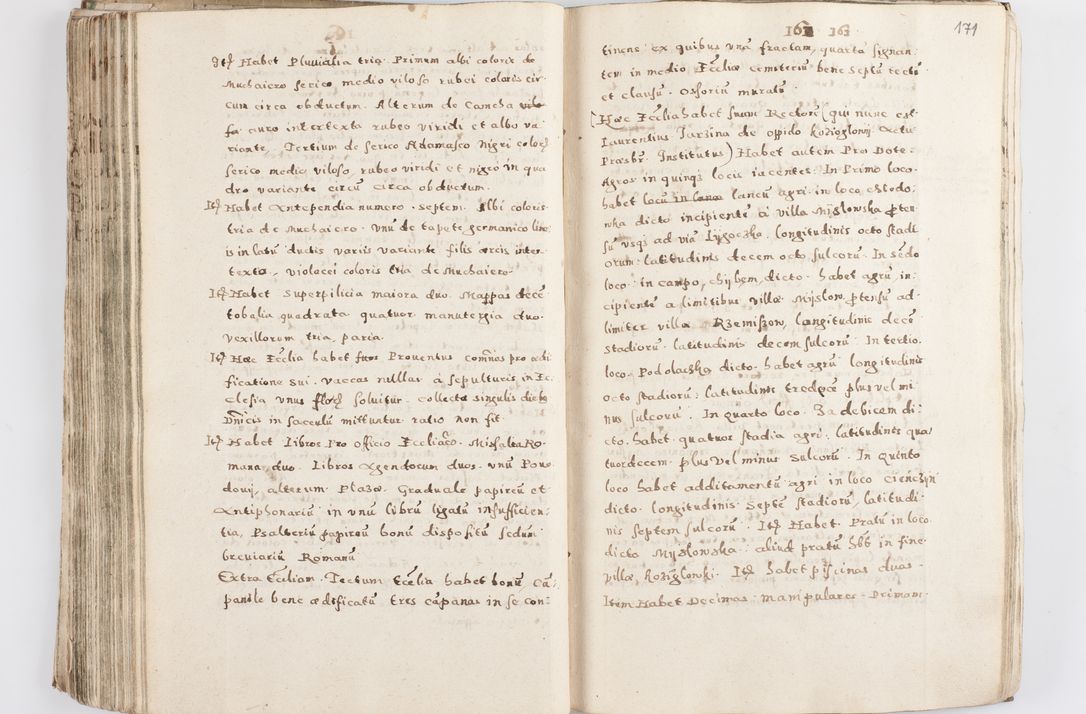 Itē Habet Pluuialia tria. Primum albi coloris de
Muchaiero serico medio viloso rubei coloris cir
cum circa obductum. Alterum de Camcha
fa auro intertexta rubeo viridi et albo va
riante. Tertium de serico Adamasco Nigri coloris
serico medio viloso, rubeo viridi et nigro in qua
dro variante circū circa obductum.
Itē Habet Antependia numero. septem. Albi coloris
tria de Muchaiero. Vnū de tapete germanico line
is in latū ductis variis variante filis inter
texta. violacei coloris tria de Muchaiero
Itē Habet Superpilicia maiora duo. Mappas decē
tobalia quadrata quatuor manutergia duo.
vexillorum tria paria.
Itē Hæc Ecclia habet suos Prouentus pro ædi
ficatione sui. vaccas nullas à sepulturis in Ec
clesia vnus solvitur. collecta singulis diebq
Dnīcis in sacculū mittuntur ratio non fit.
Itē Habet Libros Pro officio Missalia Ro
mana duo. Libros Agendorum duos. vnū Pouo
dovij, alterum Plaza. Graduale papireū et
Antiphonariū in vnū librū ligatū insufficien:
tia, Psalteriū papireū bonū dispositū sedum
breviariū Romanū
Extra Eccliam. Tectum Ecclia habet bonū, Cā:
panile bene ædificatū tres cāpanas in se con:
161 163
171
tinens ex quibus vnā fractam, quarta signan:
tem in medio Ecclia cemiteriū bene septū tectū
et clausū. Ossoriū muratū.
(Hæc Ecclia habet suum Rectorē (qui nunc est
Laurentius Jarzina de oppido Koziglowij Actu
Præsbr. Institutus) Habet autem Pro Dote.
Agros in quinqz locis iacentes. In Primo loco
habet locū in laneū agri. in loco
wka dicto incipientē à villa Myslowska
sū vsqz ad viā Lygoczka. longitudinis octo stadi
orum: latitudinis decem octo sulcorū. In secdo
loco. in campo, chijbem, dicto. habet agrū in:
cipientē a limitibus villæ Mijslow ad
limites villæ Rzemiszow, longitudinis decē
stadiorū. latitudinis decem sulcorū. In tertio.
loco. Podolaczka dicto. habet agrū longitudinis
octo stadiorū: latitudinis tredecē plus vel mi
nus sulcorū. In quarto loco. Za debicem di:
cto. habet quatuor stadia agri. latitudines qua
tuordecem plus vel minus sulcorū. In quinto
loco habet additamentū agri in loco
dicto. longitudinis Septē stadiorū, latitudi
nis septem sulcorū. Itē Habet. Pratū in loco
dicto Myslowska. aliud pratū hbt in fine
villæ, Koziglowki. Itē habet piscinas duas.
Item Habet Decimas. manipulares. Primam.